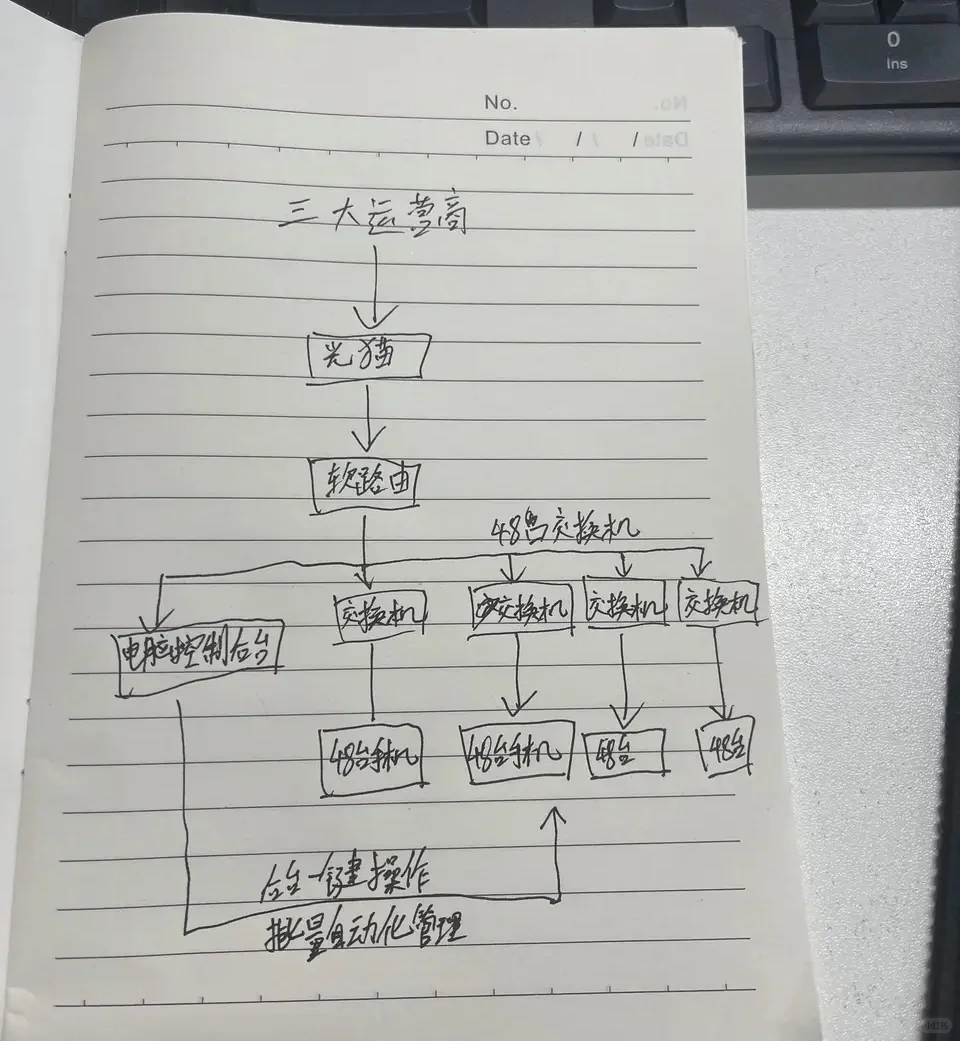 0
Ins
No.
Date / / /
三大运营商
光猫
软路由
48口交换机
交换机 交换机 交换机 交换机
电脑控制后台
48台手机 48台手机 48台 48台
后台一键操作
批量自动化管理